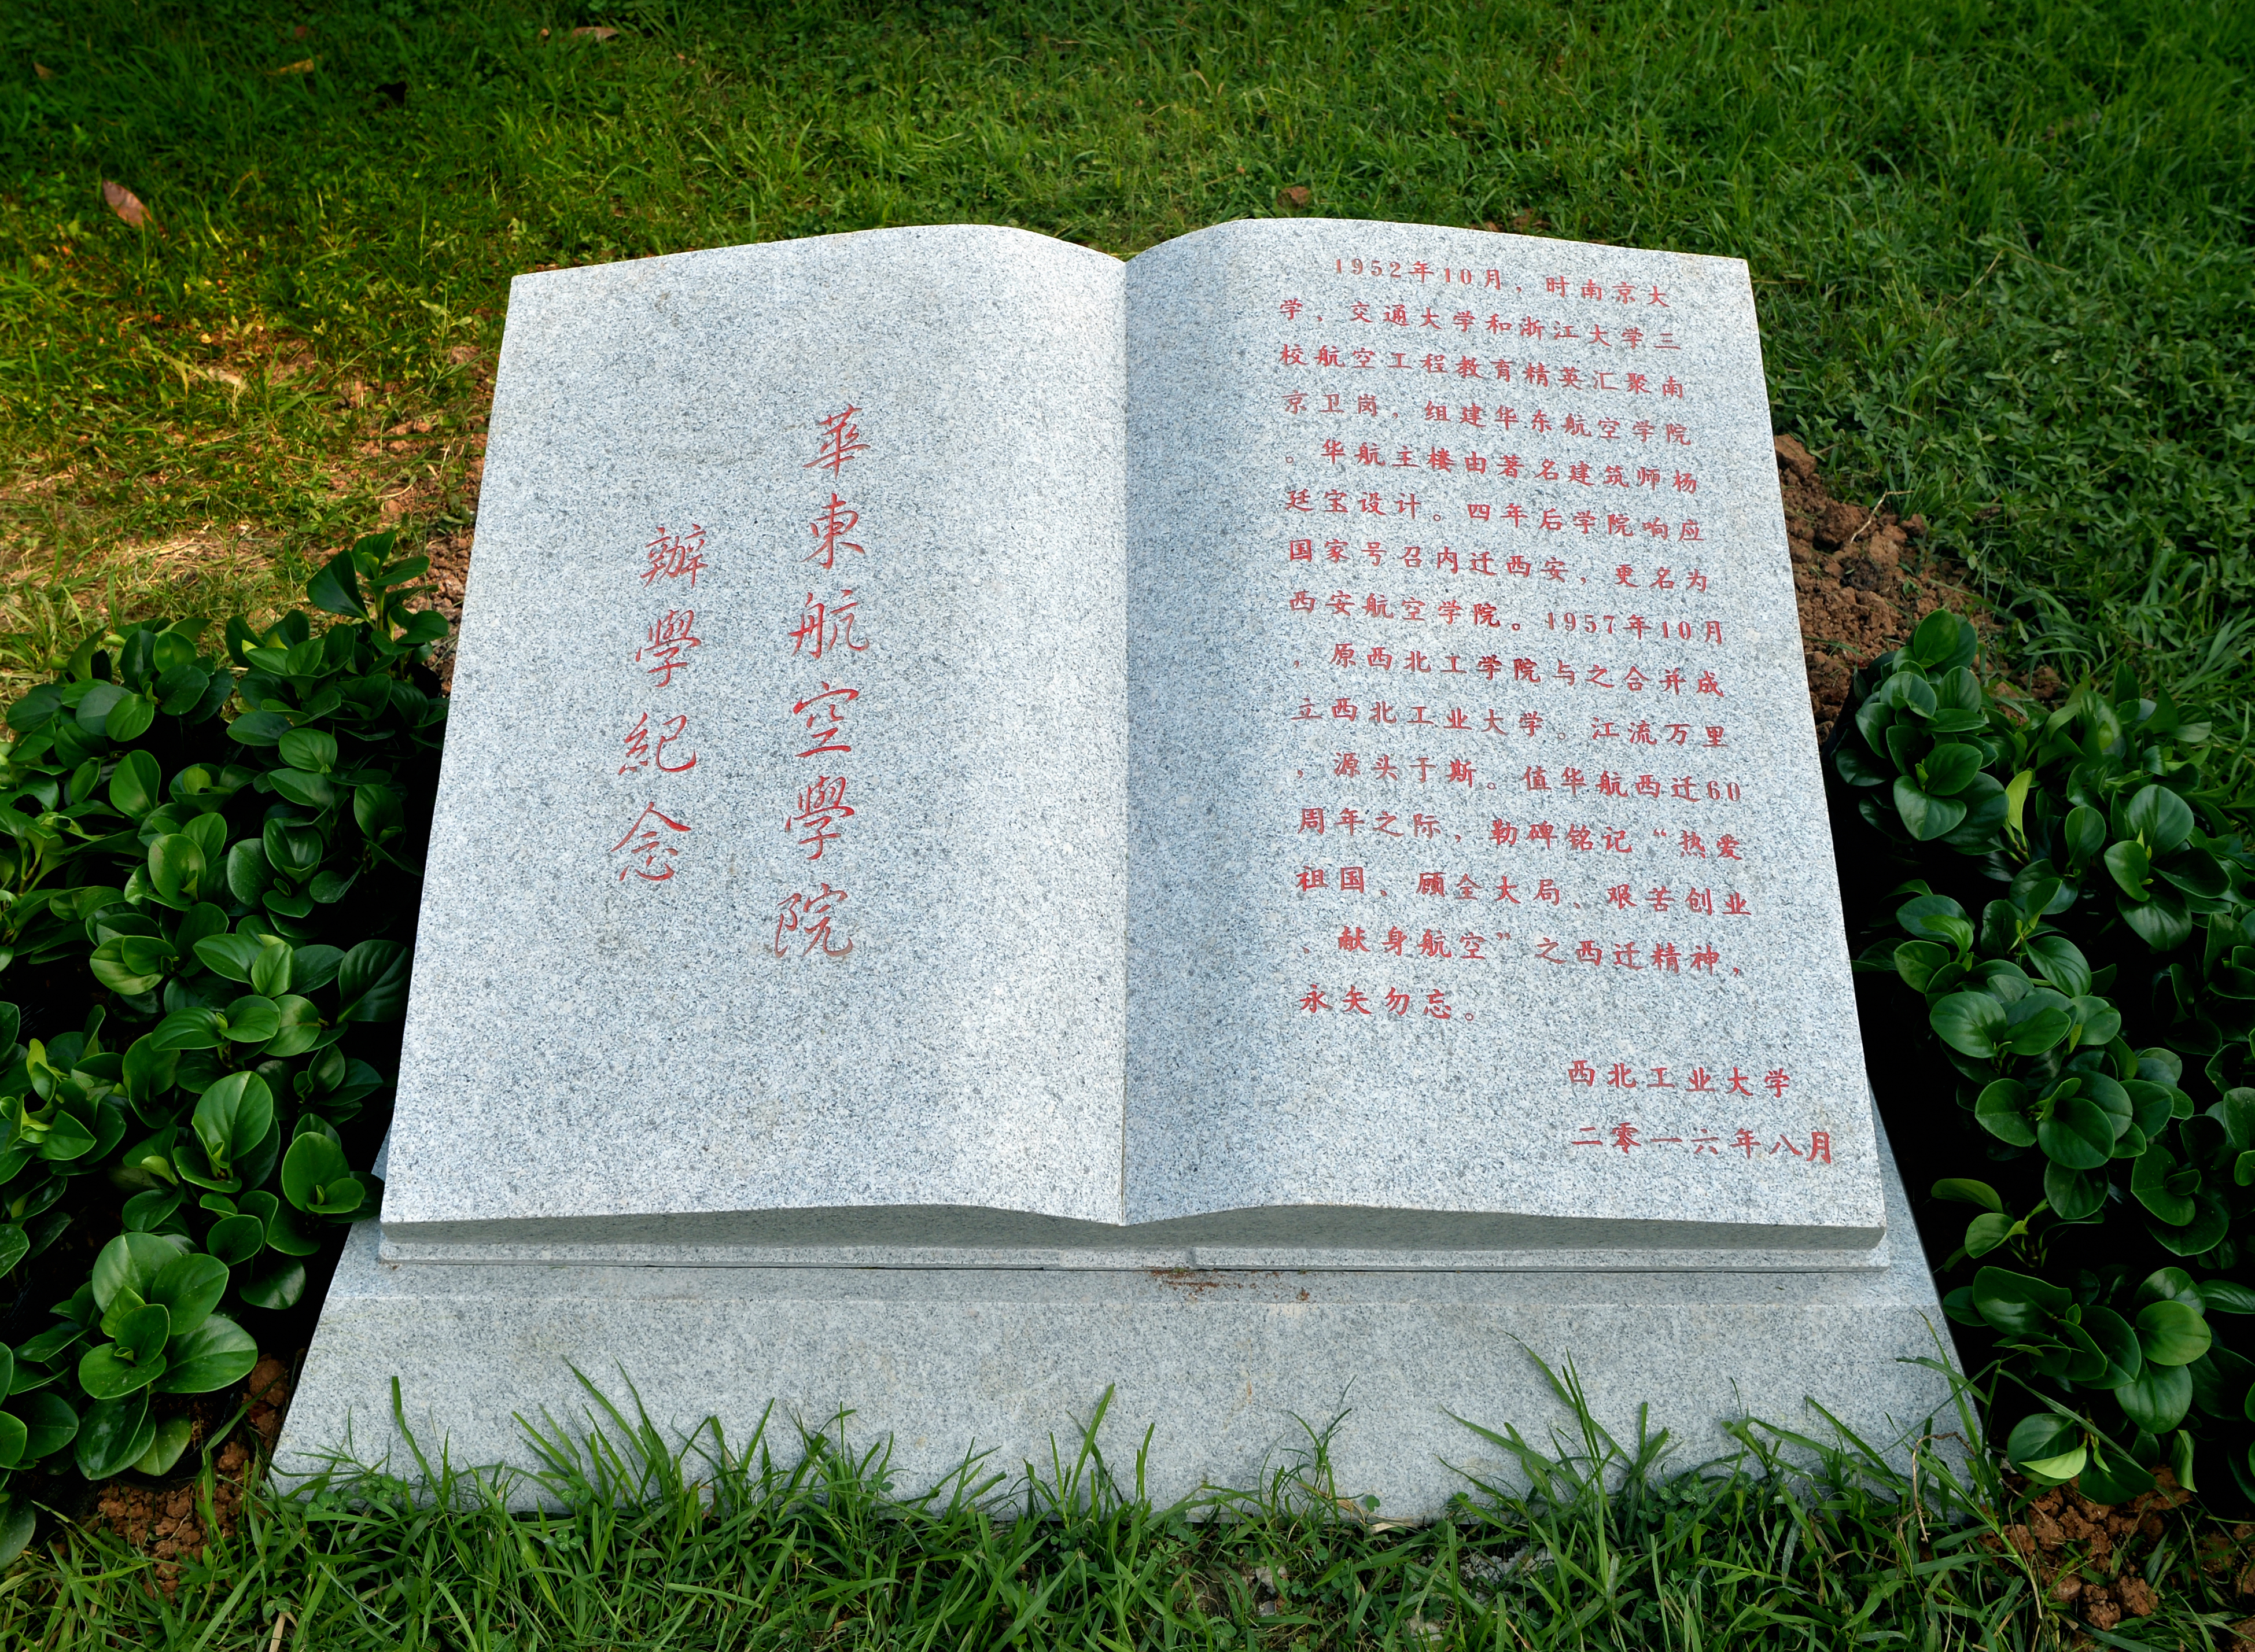 華東航空學院
辦學紀念
1952年10月，时南京大
学、交通大学和浙江大学三
校航空工程教育精英汇聚南
京卫岗，组建华东航空学院
。华航主楼由著名建筑师杨
廷宝设计。四年后学院响应
国家号召内迁西安，更名为
西安航空学院。1957年10月
，原西北工学院与之合并成
立西北工业大学。江流万里
，源头于斯。值华航西迁60
周年之际，勒碑铭记“热爱
祖国、顾全大局、艰苦创业
、献身航空”之西迁精神，
永矢勿忘。
西北工业大学
二零一六年八月